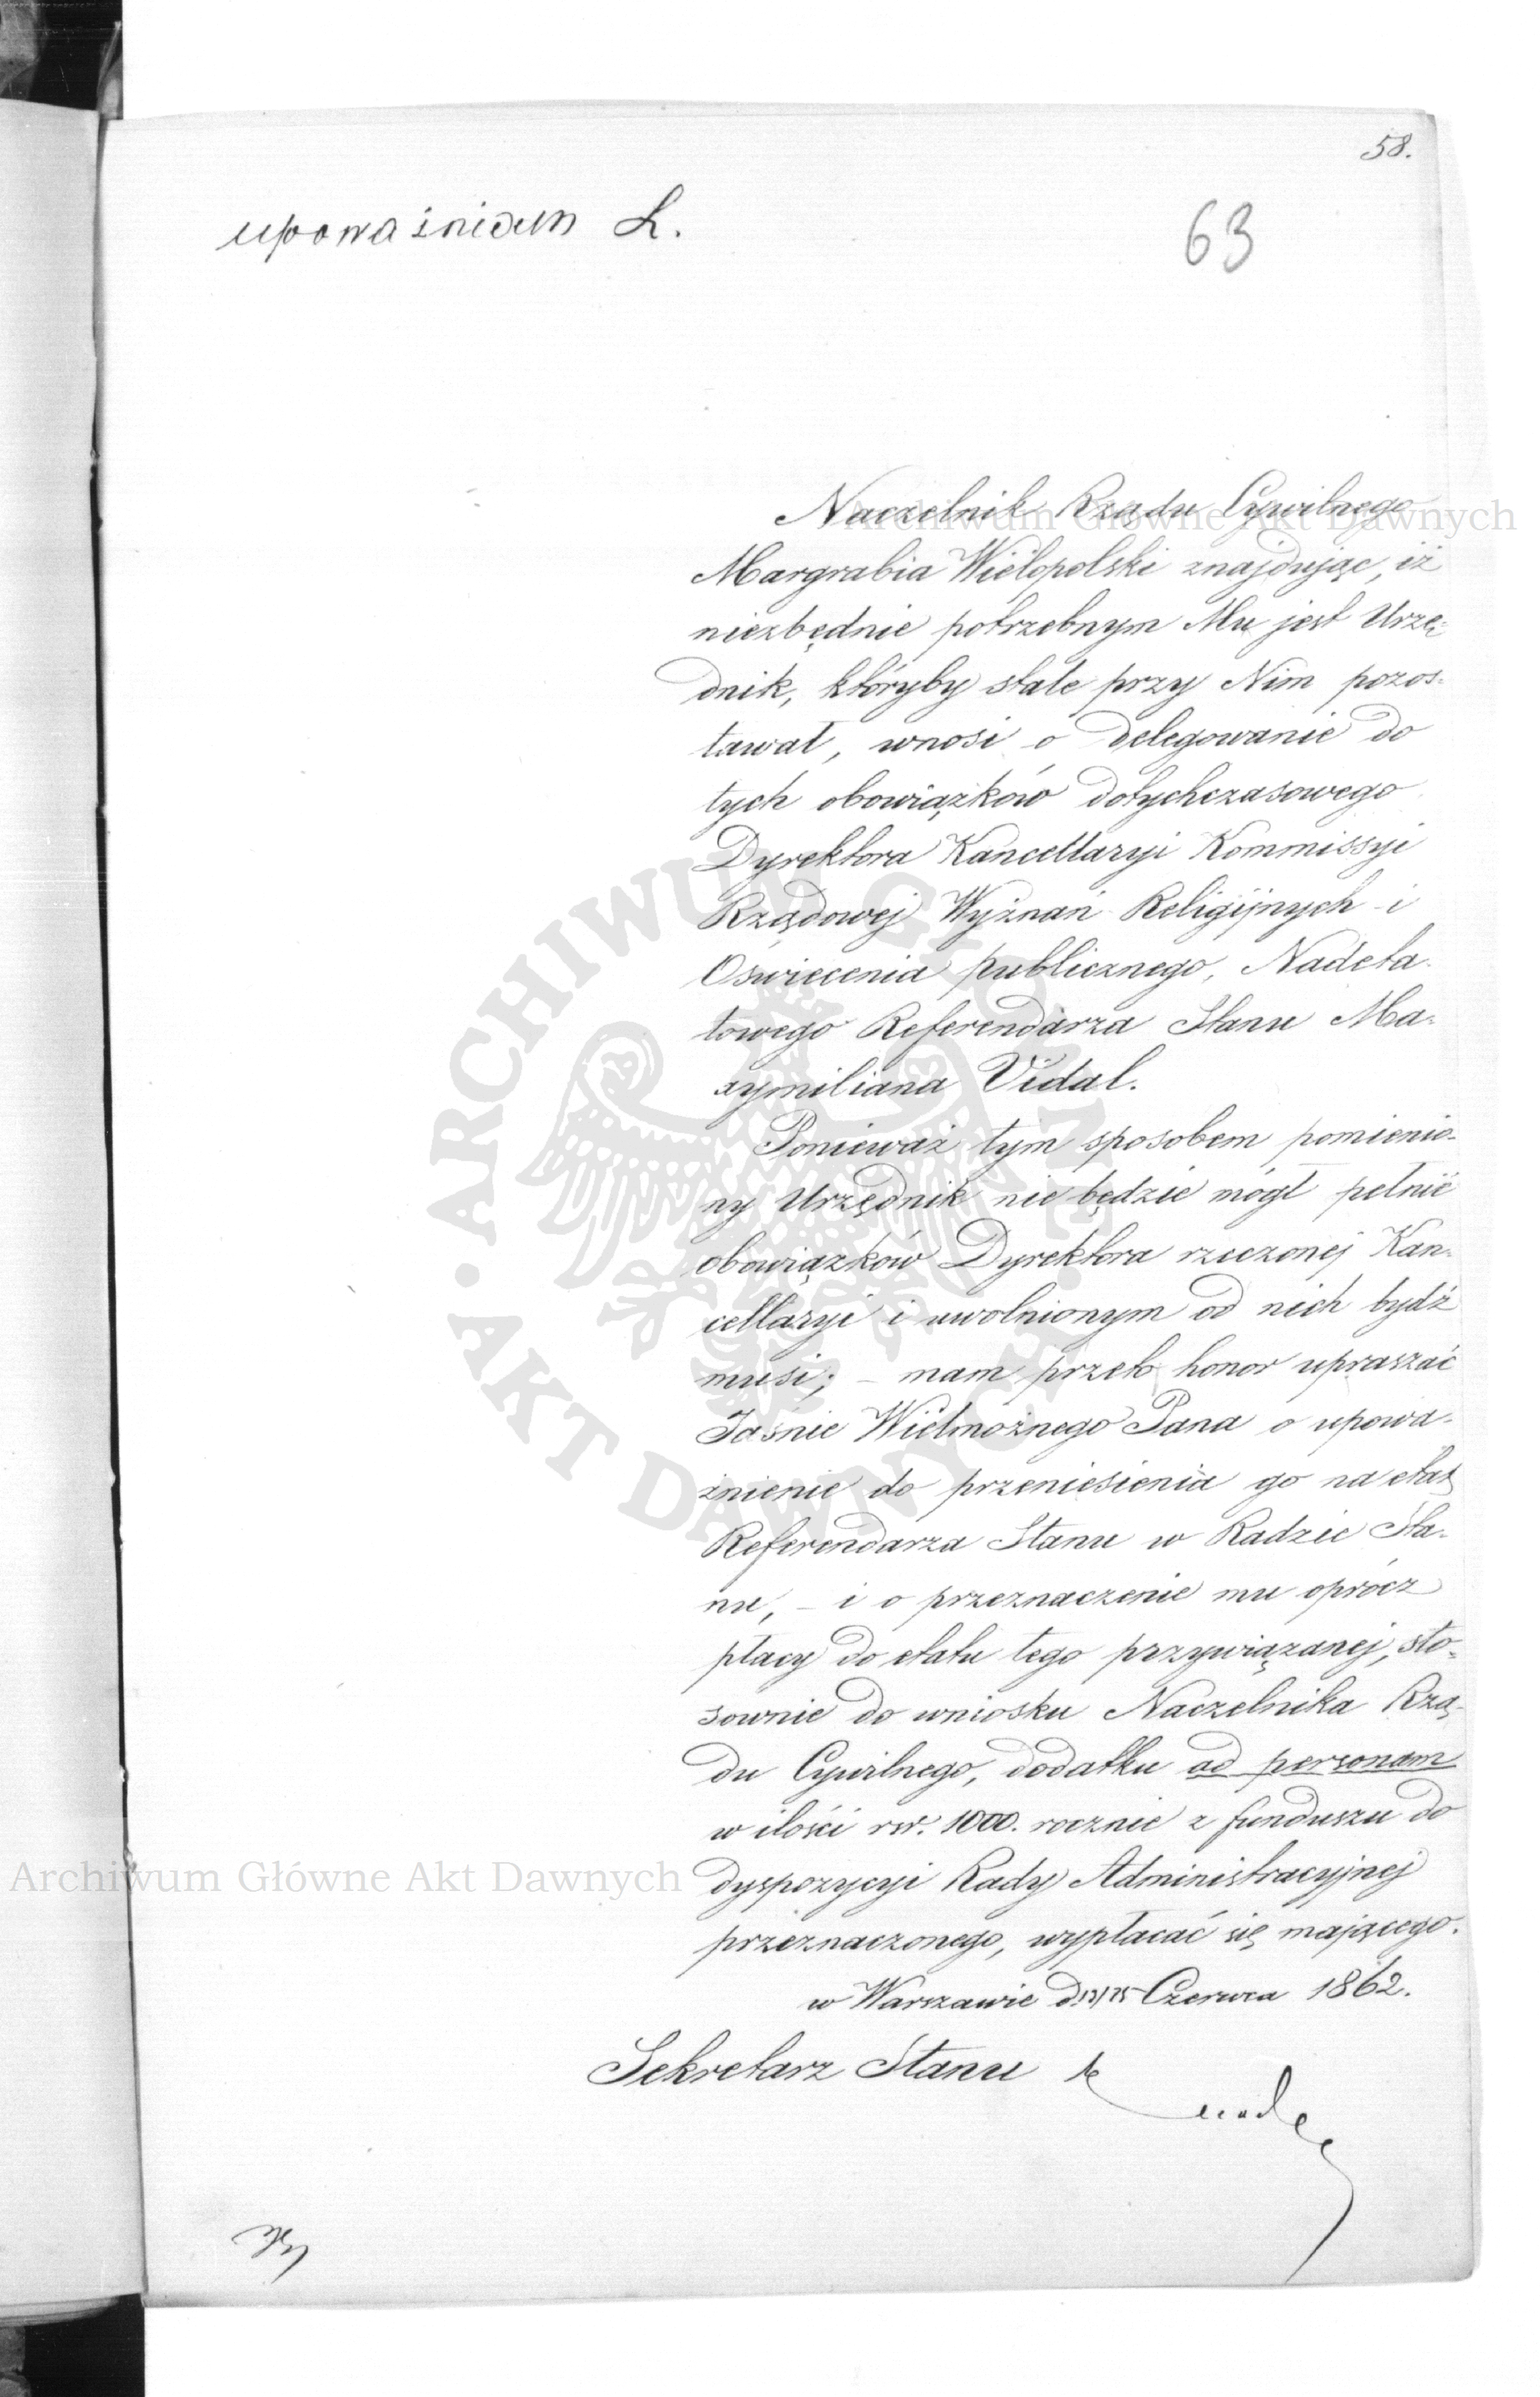 58.
upoważniam L.
63
Naczelnik Rządu Cywilnego
Margrabia Wielopolski znajdując, iż
niezbędnie potrzebnym Mu jest Urzę-
dnik, któryby stale przy Nim pozos-
tawał, wnosi o delegowanie do
tych obowiązków dotychczasowego
Dyrektora Kancellaryi Kommissyi
Rządowej Wyznań Religijnych i
Oświecenia publicznego, Nadeta-
towego Referendarza Stanu Ma-
xymiliana Vidal.
Ponieważ tym sposobem pomienio-
ny Urzędnik nie będzie mógł pełnić
obowiązków Dyrektora rzeczonej Kan-
cellaryi i uwolnionym od nich bydź
musi; – mam przeto honor upraszać
Jaśnie Wielmożnego Pana o upowa-
żnienie do przeniesienia go na etat
Referendarza Stanu w Radzie Sta-
nu, – i o przeznaczenie mu oprócz
płacy do etatu tego przywiązanej, sto-
sownie do wniosku Naczelnika Rzą-
du Cywilnego, dodatku ad personam
w ilości rsr. 1000. rocznie z funduszu do
dyspozycyi Rady Administracyjnej
przeznaczonego, wypłacać się mającego.
w Warszawie d. 13/25 Czerwca 1862.
Sekretarz Stanu
Archiwum Główne Akt Dawnych
Archiwum Główne Akt Dawnych
ARCHIWUM GŁÓWNE · AKT DAWNYCH ·